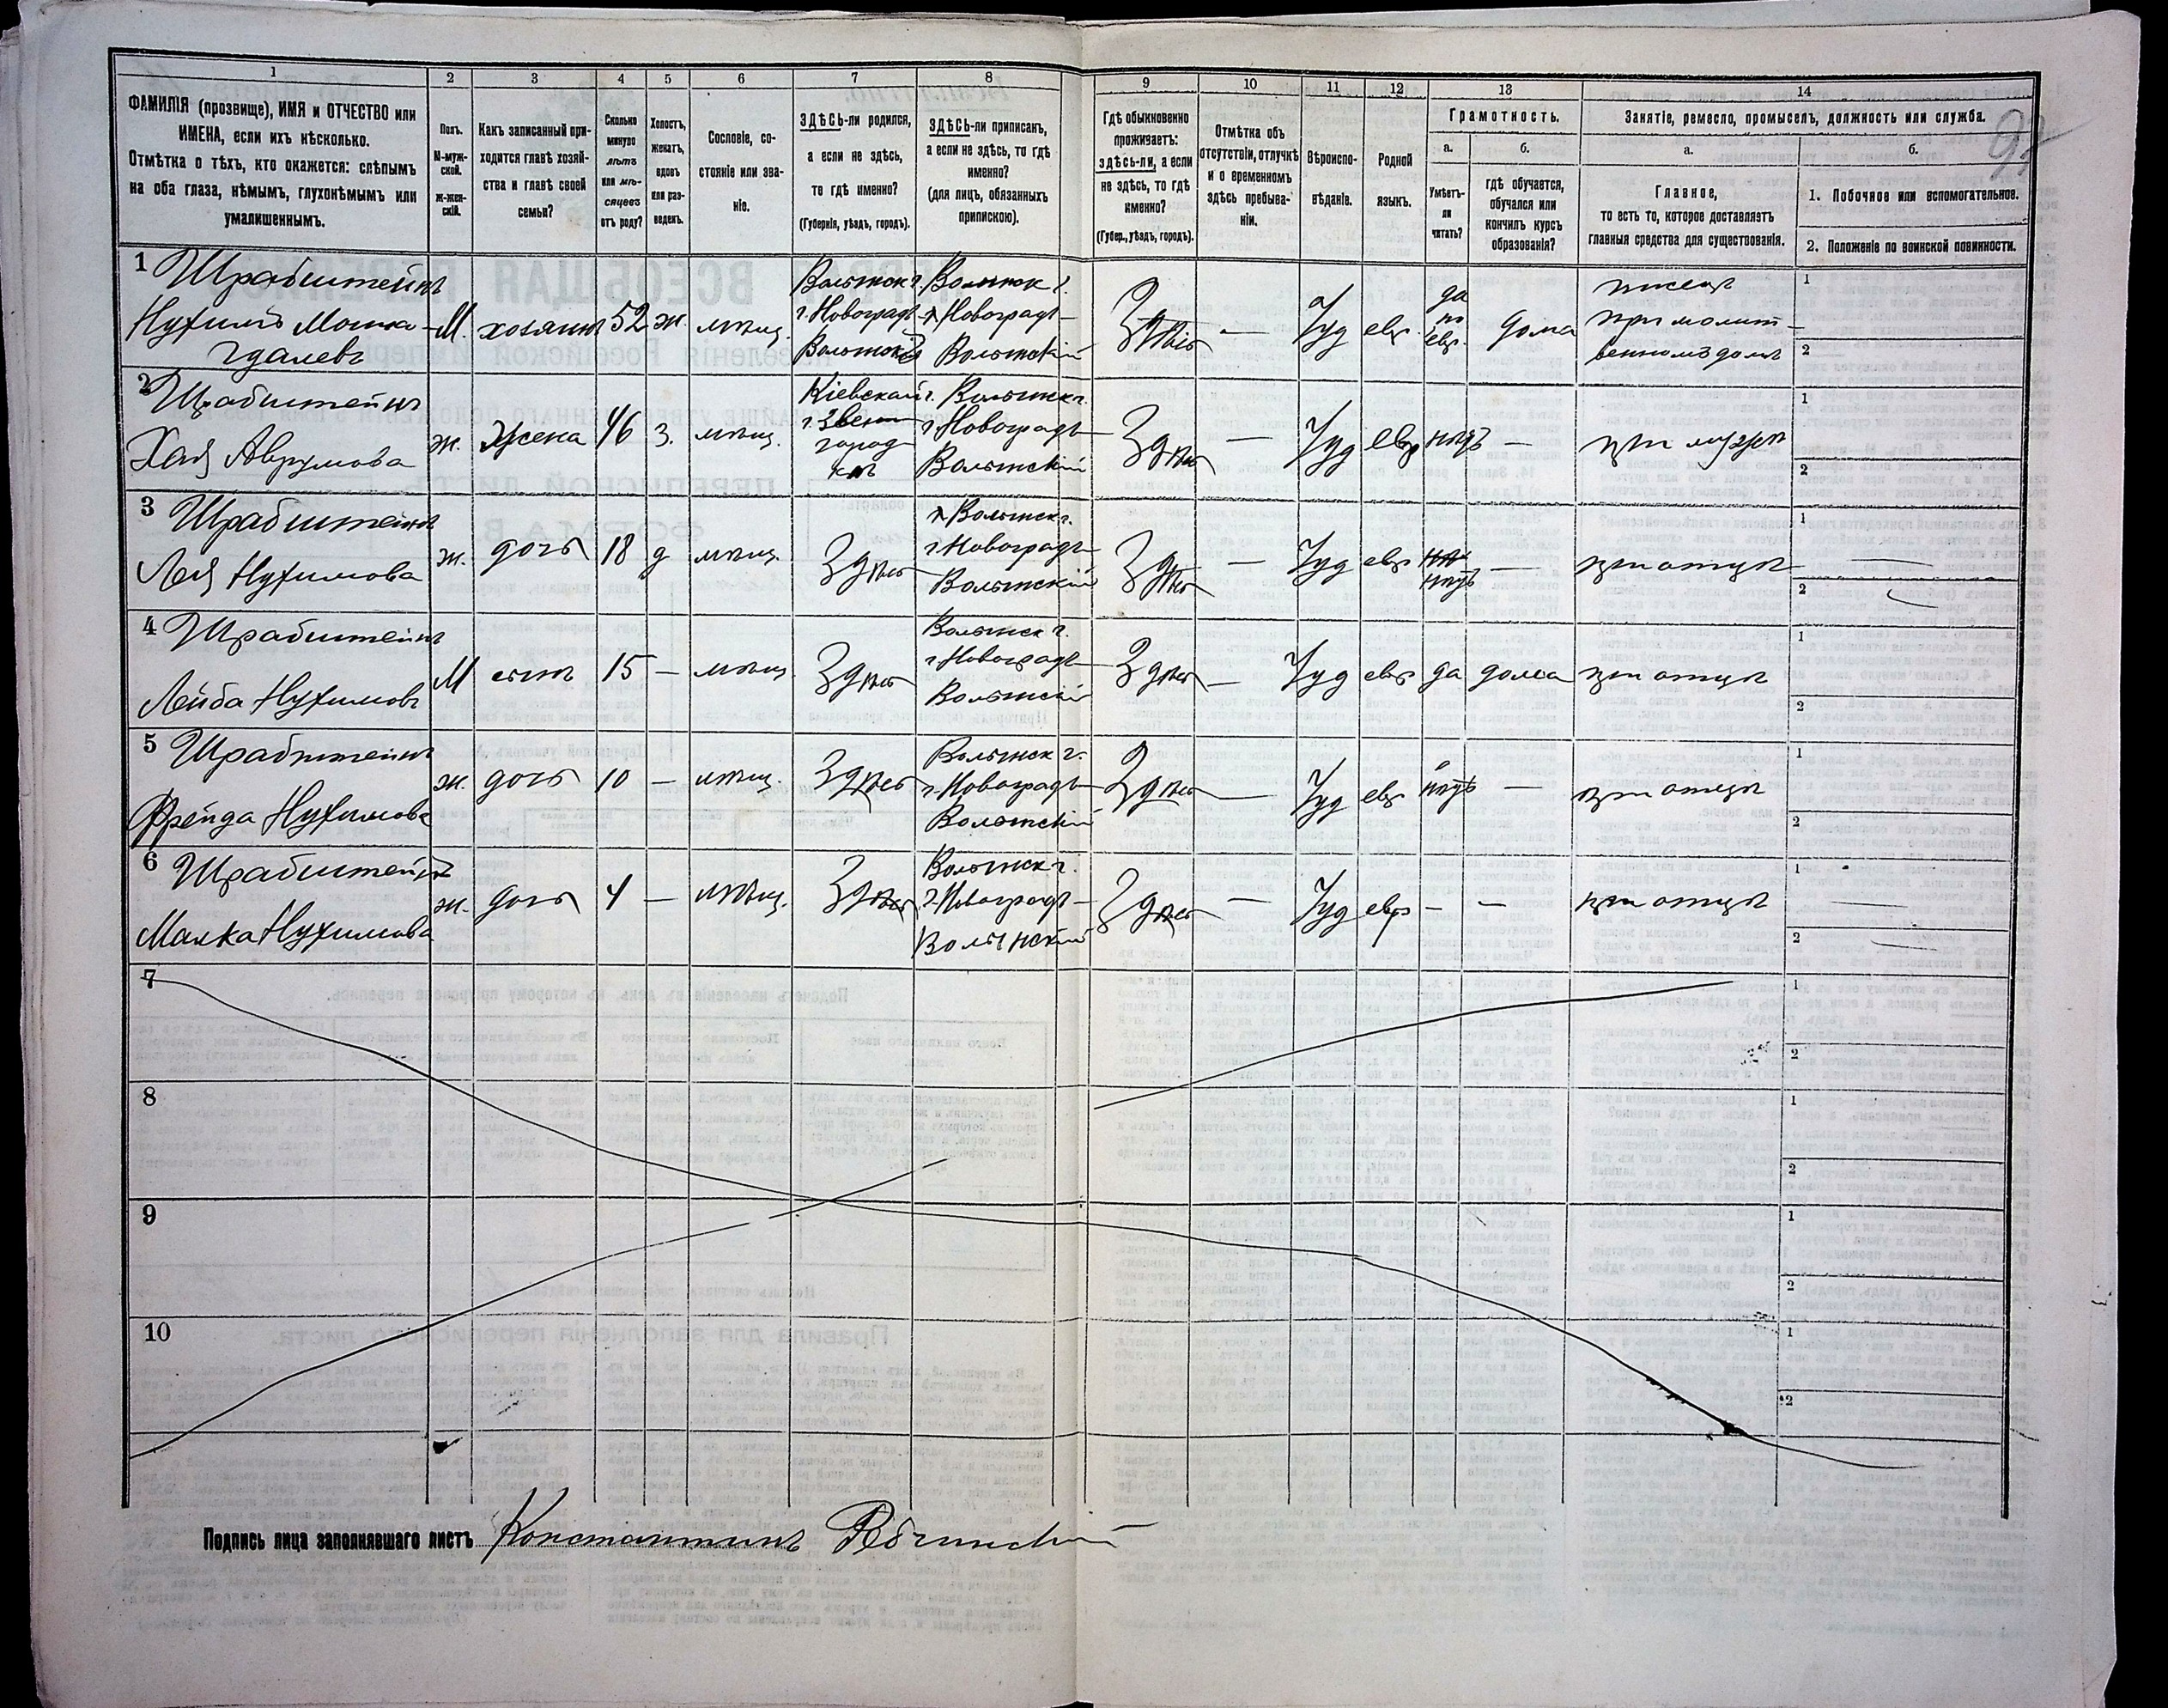 1 2 3 4 5 6 7 8 9 10 11 12 13 14
ФАМИЛІЯ (прозвище), ИМЯ и ОТЧЕСТВО или
ИМЕНА, если ихъ нѣсколько.
Отмѣтка о тѣхъ, кто окажется: слѣпымъ
на оба глаза, нѣмымъ, глухонѣмымъ или
умалишеннымъ.
Полъ.
М-муж-
ской.
ж-жен-
скій.
Какъ записанный при-
ходится главѣ хозяй-
ства и главѣ своей
семьи?
Сколько
минуло
лѣтъ
или мѣ-
сяцевъ
отъ роду?
Холостъ,
женатъ,
вдовъ
или раз-
веденъ.
Сословіе, со-
стояніе или зва-
ніе.
ЗДѢСЬ-ли родился,
а если не здѣсь,
то гдѣ именно?
(Губернія, уѣздъ, городъ).
ЗДѢСЬ-ли приписанъ,
а если не здѣсь, то гдѣ
именно?
(для лицъ, обязанныхъ
припискою).
Гдѣ обыкновенно
проживаетъ:
здѣсь-ли, а если
не здѣсь, то гдѣ
именно?
(Губер., уѣздъ, городъ).
Отмѣтка объ
отсутствіи, отлучкѣ
и о временномъ
здѣсь пребыва-
ніи.
Вѣроиспо-
вѣданіе.
Родной
языкъ.
Грамотность.
а.
Умѣетъ-
ли
читать?
б.
гдѣ обучается,
обучался или
кончилъ курсъ
образованія?
Занятіе, ремесло, промыселъ, должность или служба.
а.
Главное,
то есть то, которое доставляетъ
главныя средства для существованія.
б.
1. Побочное или вспомогательное.
2. Положеніе по воинской повинности.
1 Шрабштейнъ
Нухимъ Мошка-
Гдалевъ
М. хозяинъ 52 ж. мѣщ.
Волынск г.
г. Новоградъ-
Волынскій
Волынск г.
г. Новоградъ-
Волынскій
Здѣсь — Іуд евр.
да
по
евр.
дома
при молит-
венномъ домѣ
1
2
2 Шрабштейнъ
Хая Аврумова
ж. жена 46 з. мѣщ.
Кіевской г.
г. Звени
город
къ
Волынск г.
г. Новоградъ-
Волынскій
Здѣсь — Іуд евр нѣтъ — при мужѣ
1
2
3 Шрабштейнъ
Лея Нухимова
ж. дочь 18 д мѣщ. Здѣсь
Волынск г.
г. Новоградъ-
Волынскій
Здѣсь — Іуд евр
нѣтъ — при отцѣ
1
2
4 Шрабштейнъ
Лейба Нухимовъ
М сынъ 15 — мѣщ. Здѣсь
Волынск г.
г. Новоградъ-
Волынскій
Здѣсь — Іуд евр да дома при отцѣ
1
2
5 Шрабштейнъ
Фрейда Нухимова
ж. дочь 10 — мѣщ. Здѣсь
Волынск г.
г. Новоградъ-
Волынскій
Здѣсь — Іуд евр нѣтъ — при отцѣ
1
2
6 Шрабштейнъ
Малка Нухимова
ж. дочь 4 — мѣщ. Здѣсь
Волынск г.
г. Новоградъ-
Волынскій
Здѣсь — Іуд евр — — при отцѣ
1
2
7
1
2
8
1
2
9
1
2
10
1
2
Подпись лица заполнявшаго листъ Константинъ